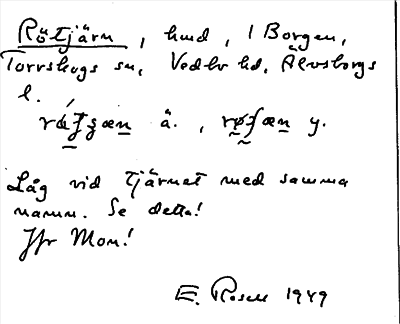 Rötjärn, hmd, i Borgen,
Torrskogs sn, Vedbo hd, Älvsborgs
l.
ä. , y.
Låg vid tjärnet med samma
namn. Se detta!
Jfr Mon!
E. Rosell 1949